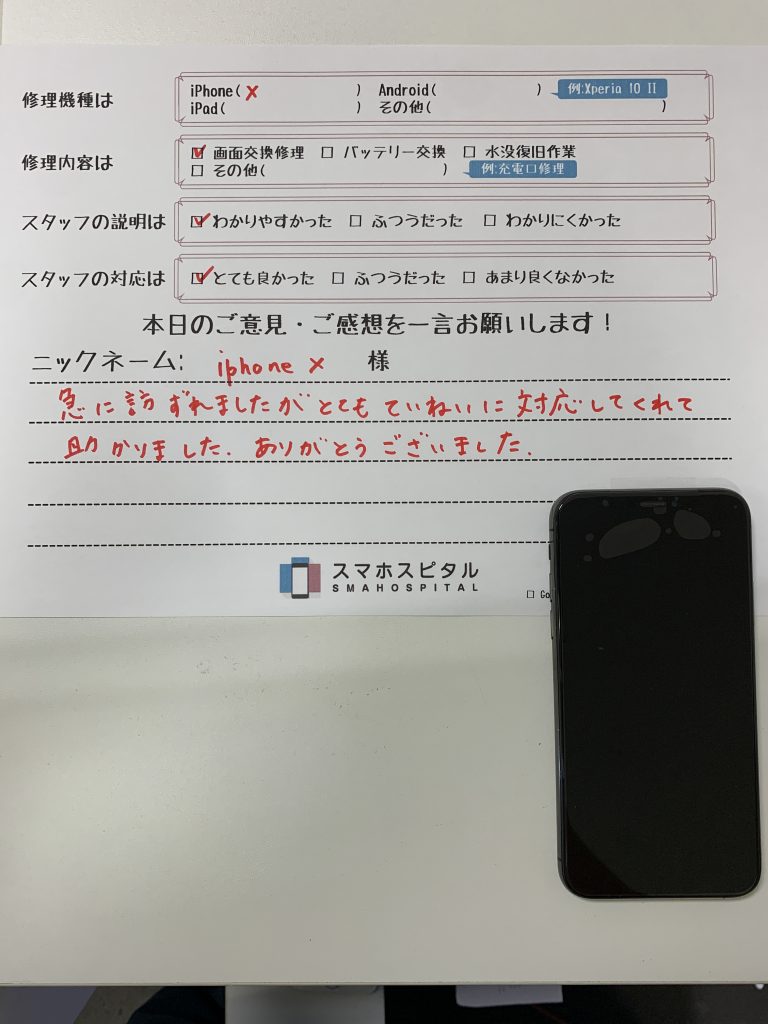 修理機種は
iPhone( X ) Android( ) 例:Xperia 10 II
iPad( ) その他( )
修理内容は
☑ 画面交換修理 □ バッテリー交換 □ 水没復旧作業
□ その他( ) 例:充電口修理
スタッフの説明は ☑ わかりやすかった □ ふつうだった □ わかりにくかった
スタッフの対応は ☑ とても良かった □ ふつうだった □ あまり良くなかった
本日のご意見・ご感想を一言お願いします!
ニックネーム: iphone X 様
急に訪ずれましたがとてもていねいに対応してくれて
助かりました. ありがとうございました.
スマホスピタル
SMAHOSPITAL
□ Go